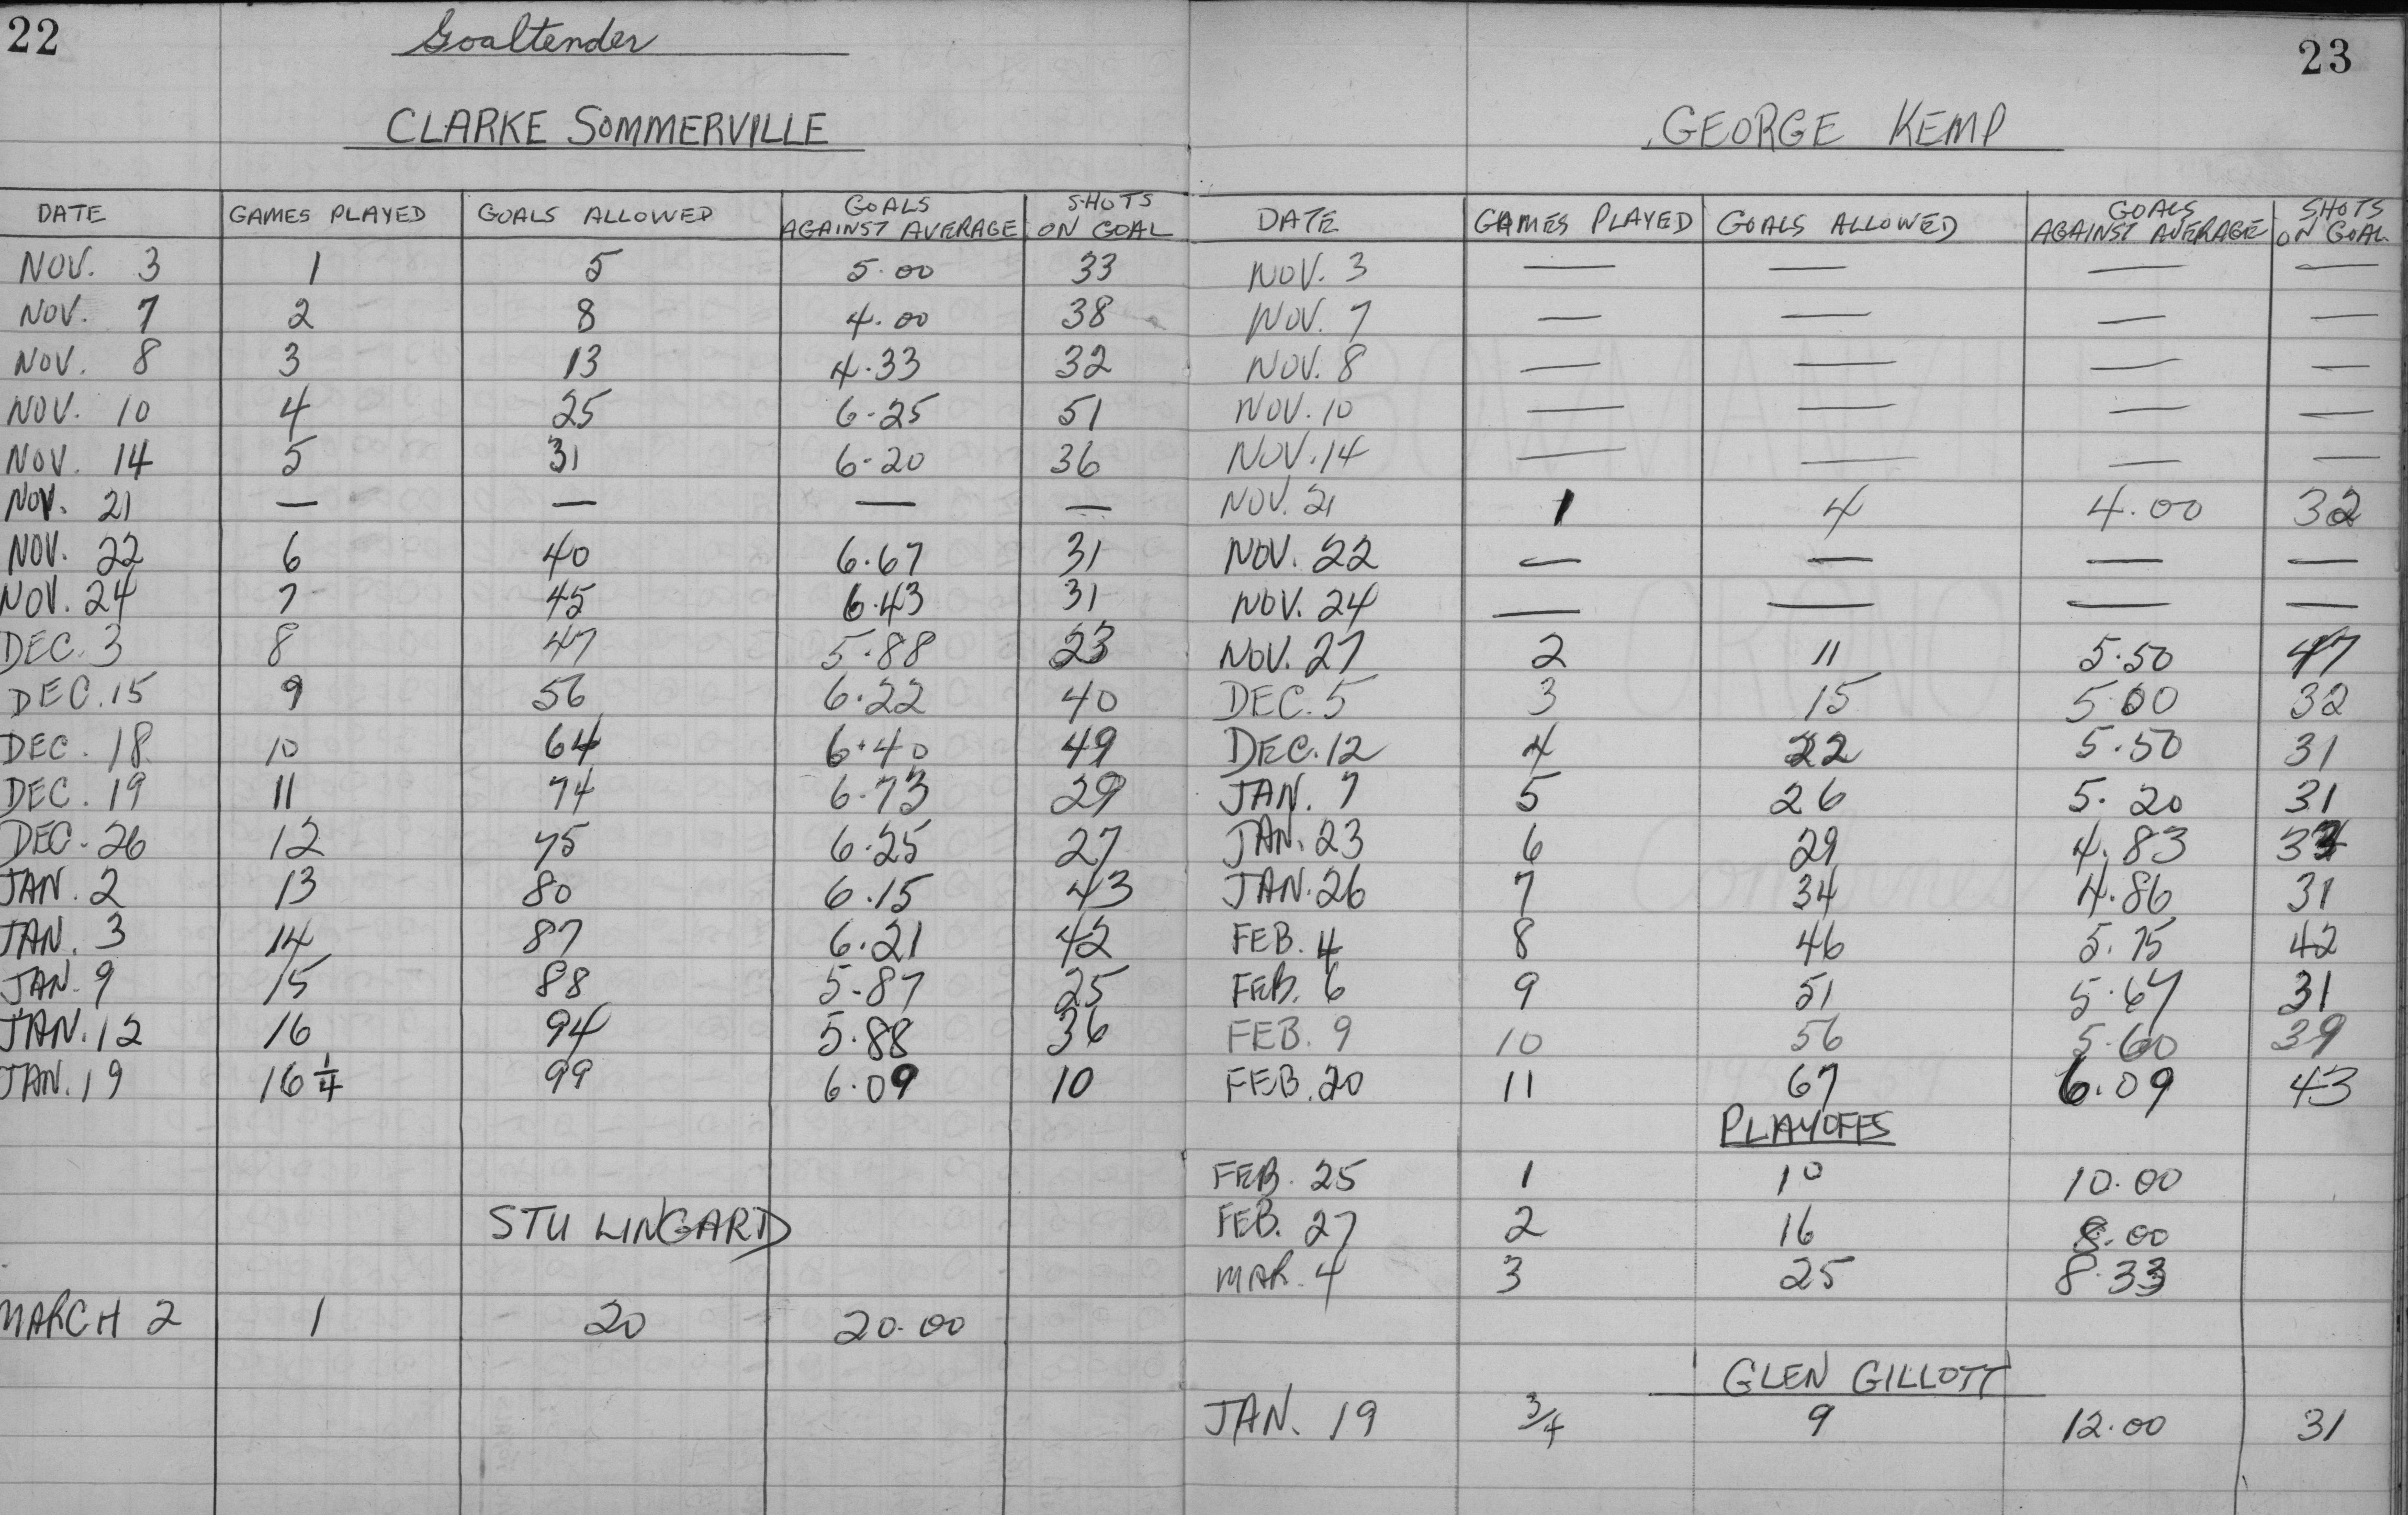 22
Goaltender
CLARKE SOMMERVILLE
DATE GAMES PLAYED GOALS ALLOWED GOALS AGAINST AVERAGE SHOTS ON GOAL
NOV. 3 1 5 5.00 33
NOV. 7 2 8 4.00 38
NOV. 8 3 13 4.33 32
NOV. 10 4 25 6.25 51
NOV. 14 5 31 6.20 36
NOV. 21 — — — —
NOV. 22 6 40 6.67 31
NOV. 24 7 45 6.43 31
DEC. 3 8 47 5.88 23
DEC. 15 9 56 6.22 40
DEC. 18 10 64 6.40 49
DEC. 19 11 74 6.73 29
DEC. 26 12 75 6.25 27
JAN. 2 13 80 6.15 43
JAN. 3 14 87 6.21 42
JAN. 9 15 88 5.87 25
JAN. 12 16 94 5.88 36
JAN. 19 16 1/4 99 6.09 10
STU LINGARD
MARCH 2 1 20 20.00
23
GEORGE KEMP
DATE GAMES PLAYED GOALS ALLOWED GOALS AGAINST AVERAGE SHOTS ON GOAL
NOV. 3 — — — —
NOV. 7 — — — —
NOV. 8 — — — —
NOV. 10 — — — —
NOV. 14 — — — —
NOV. 21 1 4 4.00 32
NOV. 22 — — — —
NOV. 24 — — — —
NOV. 27 2 11 5.50 47
DEC. 5 3 15 5.00 32
DEC. 12 4 22 5.50 31
JAN. 7 5 26 5.20 31
JAN. 23 6 29 4.83
JAN. 26 7 34 4.86 31
FEB. 4 8 46 5.75 42
FEB. 6 9 51 5.67 31
FEB. 9 10 56 5.60 39
FEB. 20 11 67 6.09 43
PLAYOFFS
FEB. 25 1 10 10.00
FEB. 27 2 16 8.00
MAR. 4 3 25 8.33
GLEN GILLOTT
JAN. 19 3/4 9 12.00 31